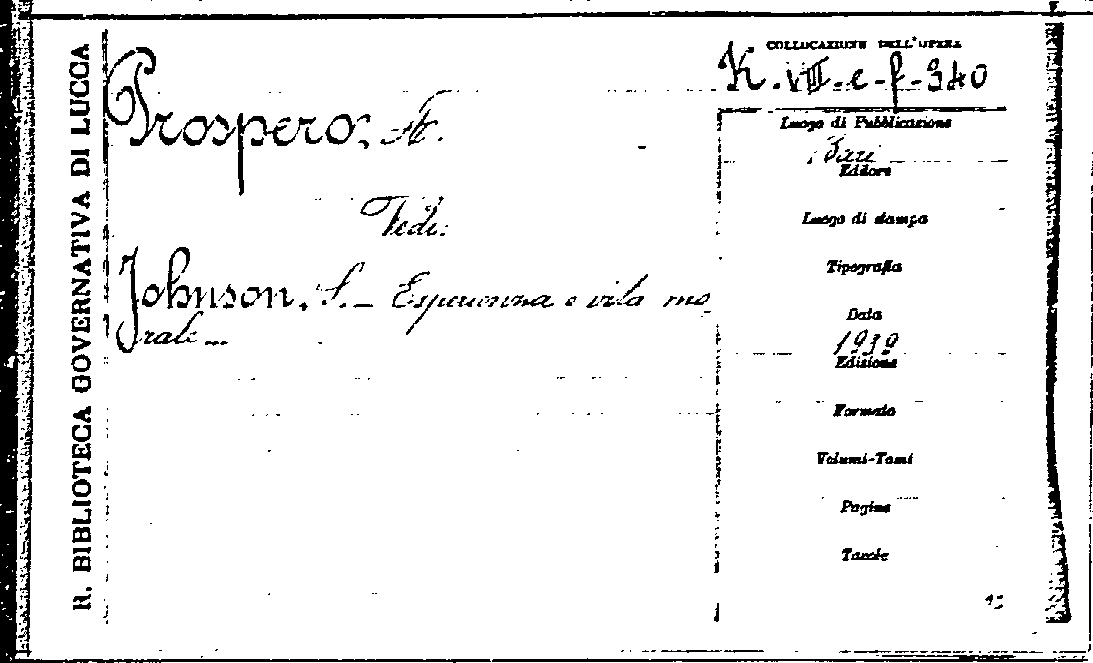 R. BIBLIOTECA GOVERNATIVA DI LUCCA
COLLOCAZIONE DELL'OPERA
K.VIII.e-f-340
Prospero, A.
Luogo di Pubblicazione
Bari
Editore
Vedi:
Luogo di stampa
Tipografia
Johnson, S. - Esperienza e vita mo
rale...
Data
1939
Edizione
Formato
Volumi-Tomi
Pagine
Tavole